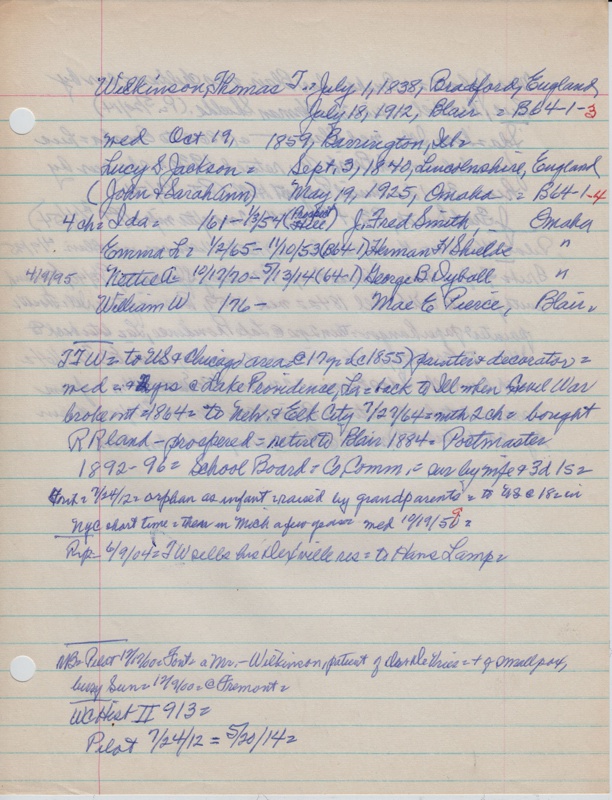 Wilkinson, Thomas T. = July 1, 1838, Bradford, England
July 18, 1912, Blair = B64-1-3
med Oct 19, 1859, Barrington, Ill =
Lucy S Jackson = Sept. 3, 1840, Lincolnshire, England
(John & Sarah Ann) May 19, 1925, Omaha = B64-1-4
4 ch = Ida = /61 - 1/3/54 (Prospect Hill) J. Fred Smith, Omaha
Emma L = 1/2/65 - 11/10/53 (B64-1) Herman H Shields "
4/9/95 Nettie A = 10/17/70 - 5/13/14 (64-1) George B. Dyball "
William W /76 - Mae E Pierce, Blair =
TTW = to US & Chicago area @ 17 yr (c1855) painter & decorator =
med = & 2 yrs @ Lake Providence, La = back to Ill when Civil War
broke out = 1864 = to Neb. & Elk City 7/27/64 = with 2 ch = bought
RR land - prospered = retire to Blair 1884 = Postmaster
1892-96 = School Board = Co. Comm. = sur by wife & 3d 1s =
= 7/24/12 = orphan as infant = raised by grandparents = to US @ 18 = in
NYC short time = then in Mich a few years med 10/19/59 =
6/9/04 = TW sells his Dexville res = to Hans Lamp =
NB = Pilot 12/12/60 = Font = a Mr. - Wilkinson, patient of = + of small pox,
bury Sun = 12/9/60 = @ Fremont =
WC Hist II 913 =
Pilot 7/24/12 = 5/20/14 =